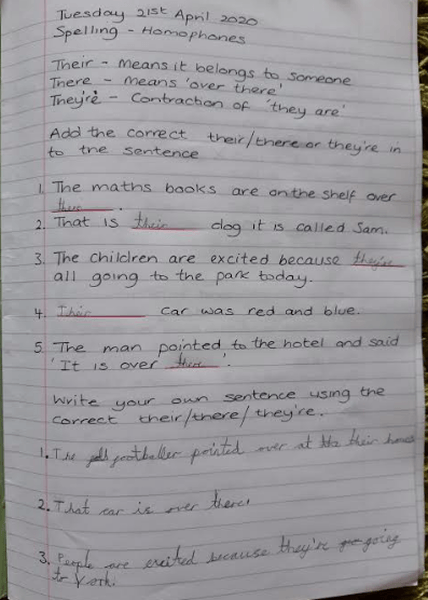 Tuesday 21st April 2020
Spelling - Homophones
Their - means it belongs to someone
There - means 'over there'
They're - Contraction of 'they are'
Add the correct their/there or they're in
to the sentence
1. The maths books are on the shelf over
there.
2. That is their dog it is called Sam.
3. The children are excited because they're
all going to the park today.
4. Their car was red and blue.
5. The man pointed to the hotel and said
'It is over there'.
Write your own sentence using the
correct their/there/they're.
1. The footballer pointed over at their
2. That car is over there.
3. People are excited because they're going
to York.